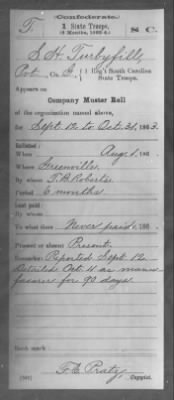 (Confederate.)
T. 1 State Troops, S C.
(6 Months, 1863-4.)
S. H. Turbyfill
Pvt, Co. G, 1 Reg't South Carolina
State Troops.
Appears on
Company Muster Roll
of the organization named above,
for Sept. 12 to Oct. 31, 1863.
Enlisted:
When Aug 1, 186 .
Where Greenville.
By whom T. B. Roberts.
Period 6 months.
Last paid:
By whom
To what time Never paid, 186 .
Present or absent Present.
Remarks: Reported Sept 12
Detailed Oct 11 as
for 90 days.
Book mark:
Copyist.